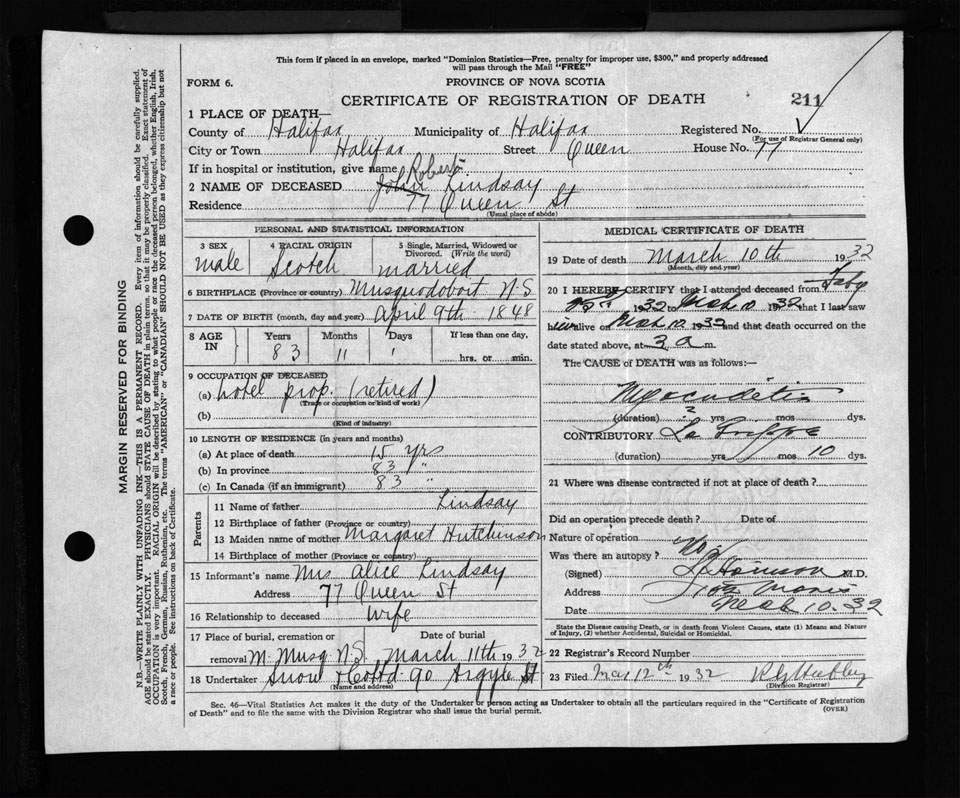 This form if placed in an envelope, marked "Dominion Statistics—Free, penalty for improper use, $300," and properly addressed
will pass through the Mail "FREE"
FORM 6.
PROVINCE OF NOVA SCOTIA
CERTIFICATE OF REGISTRATION OF DEATH
211
1 PLACE OF DEATH—
County of Halifax Municipality of Halifax Registered No.
(For use of Registrar General only)
City or Town Halifax Street Queen House No. 77
If in hospital or institution, give name
Robert
2 NAME OF DECEASED John Lindsay
Residence 77 Queen St
(Usual place of abode)
PERSONAL AND STATISTICAL INFORMATION
3 SEX 4 RACIAL ORIGIN 5 Single, Married, Widowed or
Divorced. (Write the word)
male Scotch married
6 BIRTHPLACE (Province or country) Musquodoboit N.S
7 DATE OF BIRTH (month, day and year) April 9th 1848
8 AGE IN Years Months Days If less than one day,
83 11 1 hrs. or min.
9 OCCUPATION OF DECEASED
(a) hotel prop. (retired)
(Trade or occupation or kind of work)
(b)
(Kind of industry)
10 LENGTH OF RESIDENCE (in years and months)
(a) At place of death 15 yrs
(b) In province 83 "
(c) In Canada (if an immigrant) 83 "
Parents
11 Name of father Lindsay
12 Birthplace of father (Province or country)
13 Maiden name of mother Margaret Hutchinson
14 Birthplace of mother (Province or country)
15 Informant's name Mrs Alice Lindsay
Address 77 Queen St
16 Relationship to deceased Wife
17 Place of burial, cremation or Date of burial
removal M. Musq. N.S. March 11th 1932
18 Undertaker Snow & Co Ltd 90 Argyle St
(Name and address)
MEDICAL CERTIFICATE OF DEATH
19 Date of death March 10th 1932
(Month, day and year)
20 I HEREBY CERTIFY that I attended deceased from Feby
1932 Mch 10 1932 that I last saw
him alive Mch 10. 1932 and that death occurred on the
date stated above, at 3 a m.
The CAUSE OF DEATH was as follows:—
Myocarditis
(duration) ? yrs mos dys.
CONTRIBUTORY La Grippe
(duration) yrs mos 10 dys.
21 Where was disease contracted if not at place of death?
Did an operation precede death? Date of
Nature of operation
Was there an autopsy? No
(Signed) M.D.
Address Morris
Date Mch 10.32
State the Disease causing Death, or in death from Violent Causes, state (1) Means and Nature
of Injury, (2) whether Accidental, Suicidal or Homicidal.
22 Registrar's Record Number
23 Filed Mar 12th 1932
(Division Registrar)
Sec. 46—Vital Statistics Act makes it the duty of the Undertaker or person acting as Undertaker to obtain all the particulars required in the "Certificate of Registration
of Death" and to file the same with the Division Registrar who shall issue the burial permit.
(OVER)
MARGIN RESERVED FOR BINDING
N.B.—WRITE PLAINLY WITH UNFADING INK—THIS IS A PERMANENT RECORD. Every item of information should be carefully supplied.
AGE should be stated EXACTLY. PHYSICIANS should STATE CAUSE OF DEATH in plain terms, so that it may be properly classified. Exact statement of
OCCUPATION is very important. RACIAL ORIGIN will be described by stating to what people or race the deceased person belonged, whether English, Irish,
Scotch, French, German, Russian, Ruthenian, etc. The terms "AMERICAN" or "CANADIAN" SHOULD NOT BE USED as they express citizenship but not
a race or people. See instructions on back of Certificate.